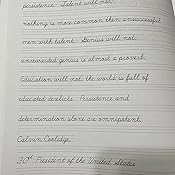 persistence. Talent will not:
nothing is more common than unsuccessful
men with talent. Genius will not:
unrewarded genius is almost a proverb.
Education will not: the world is full of
educated derelicts. Persistence and
determination alone are omnipotent.
Calvin Coolidge,
30th President of the United States